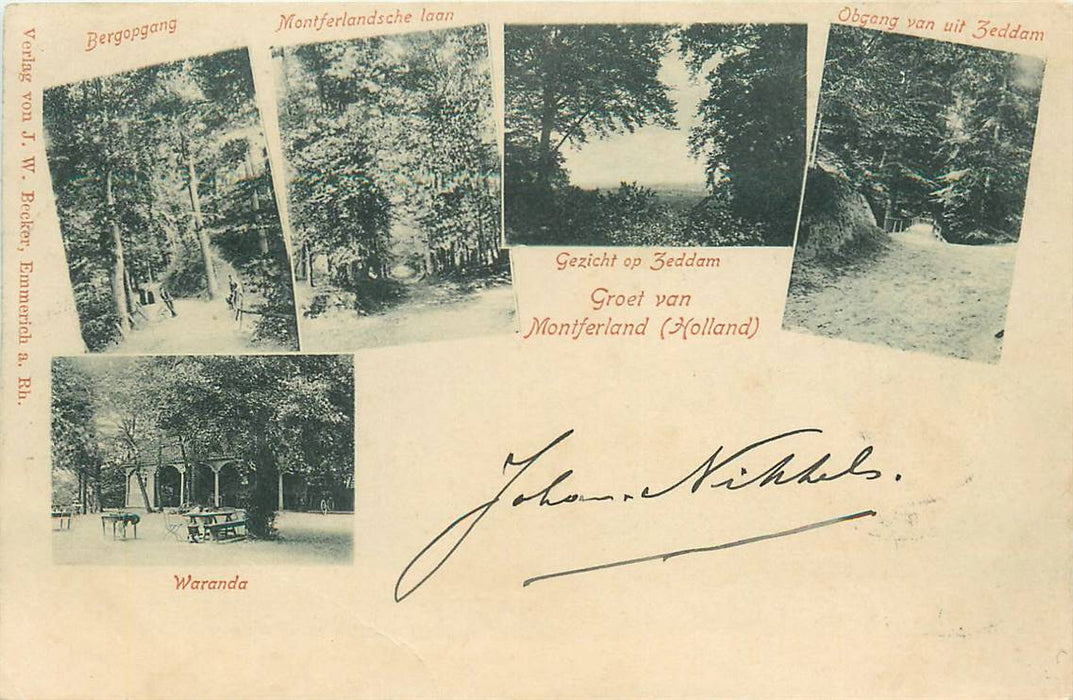 Bergopgang
Montferlandsche laan
Obgang van uit Zeddam
Verlag von J. W. Becker, Emmerich a. Rh.
Gezicht op Zeddam
Groet van
Montferland (Holland)
Johan Nikkels.
Waranda